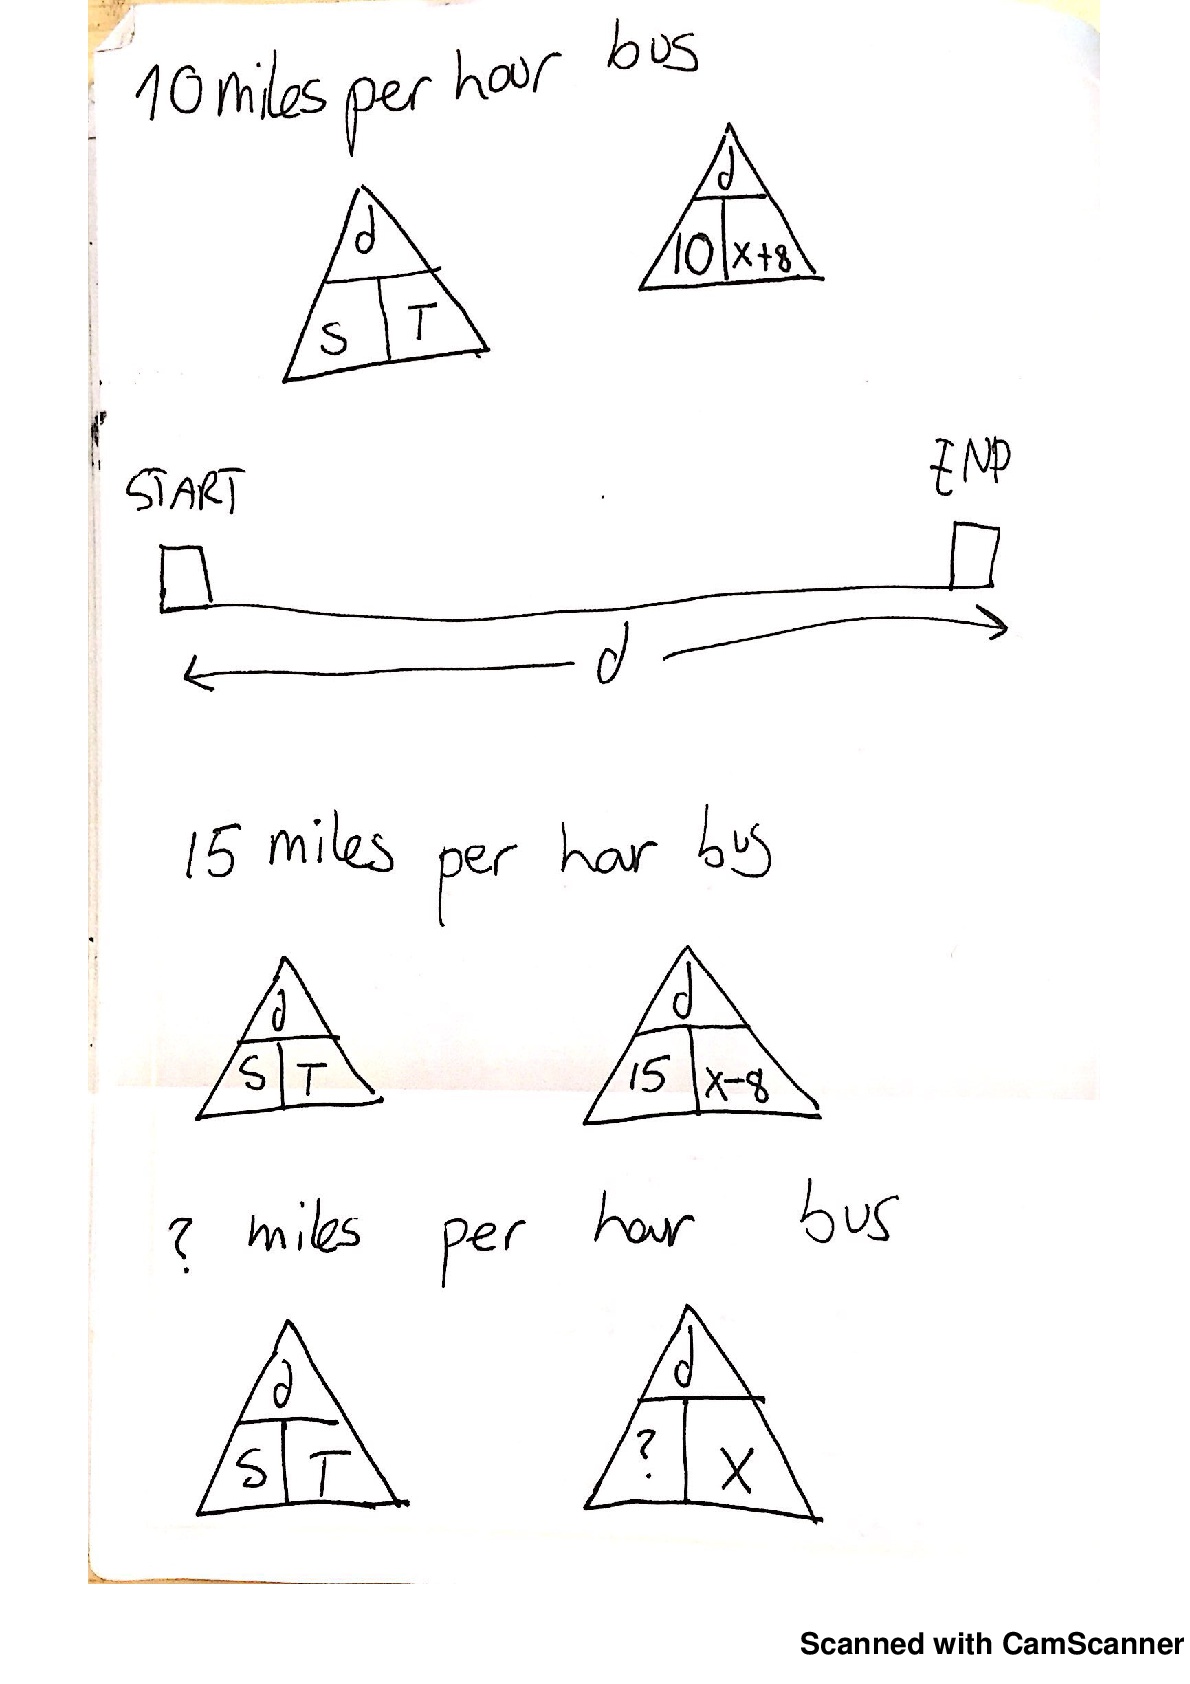 10 miles per hour bus
d
10 x+8
d
S T
START END
d
15 miles per hour bus
d
S T
d
15 x-8
? miles per hour bus
d
S T
d
? X
Scanned with CamScanner